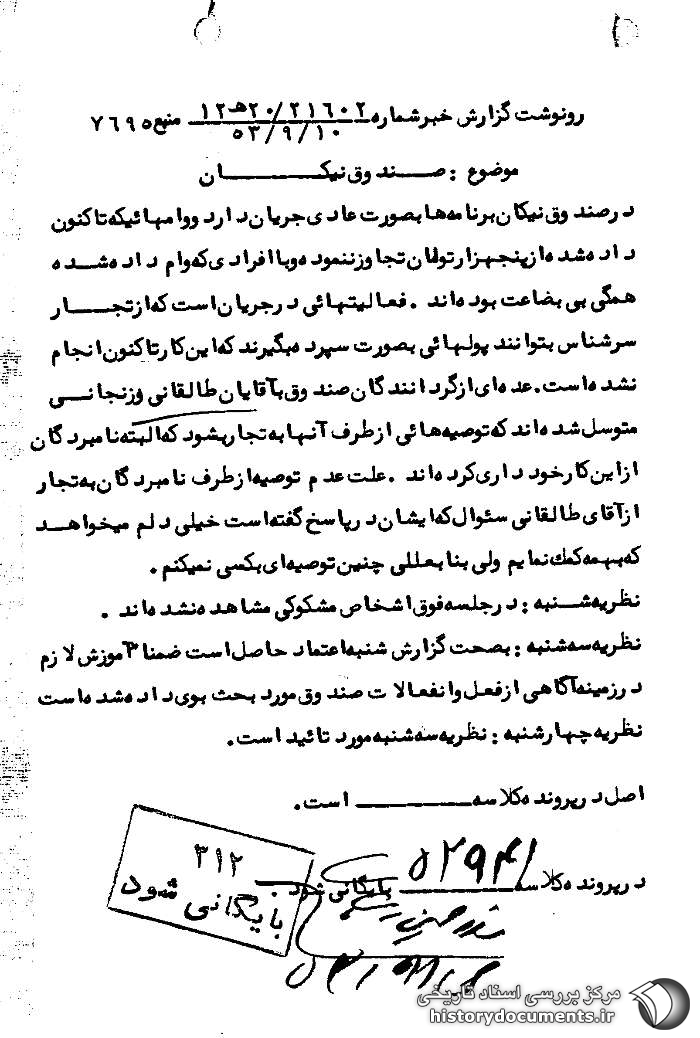 رونوشت گزارش خبر شماره ۲۱۶۰۲/۲۰هـ۱۲ منبع ۷۶۹۵
۵۳/۹/۱۰
موضوع : صندوق نیکان
در صندوق نیکان برنامه‌ها بصورت عادی جریان دارد و وامهائیکه تاکنون
داده شده از پنجهزار تومان تجاوز ننموده و با افرادی که وام داده شده
همگی بی بضاعت بوده‌اند . فعالیتهائی در جریان است که از تجار
سرشناس بتوانند پولهائی بصورت سپرده بگیرند که این کار تاکنون انجام
نشده است. عده‌ای از گردانندگان صندوق به آقایان طالقانی و زنجانی
متوسل شده‌اند که توصیه‌هائی از طرف آنها به تجار بشود که البته نامبردگان
از این کار خودداری کرده‌اند . علت عدم توصیه از طرف نامبردگان به تجار
از آقای طالقانی سئوال که ایشان در پاسخ گفته است خیلی دلم میخواهد
که بهمه کمک نمایم ولی بنا بعللی چنین توصیه‌ای بکسی نمیکنم .
نظریه شنبه : در جلسه فوق اشخاص مشکوکی مشاهده نشده‌اند .
نظریه سه‌شنبه : بصحت گزارش شنبه اعتماد حاصل است ضمنا آموزش لازم
در زمینه آگاهی از فعل و انفعالات صندوق مورد بحث بوی داده شده است
نظریه چهارشنبه : نظریه سه‌شنبه مورد تائید است .
اصل در پرونده کلاسه ـــــ است .
در پرونده کلاسه ۵۲۹۴۱ بایگانی شود
۳۱۲
بایگانی شود
مرکز بررسی اسناد تاریخی
historydocuments.ir